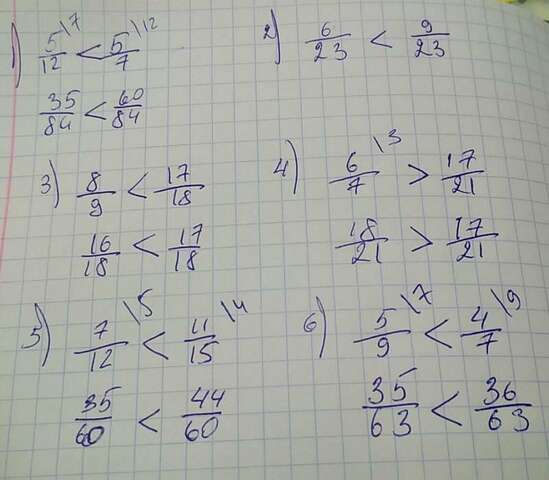 1) 5/12 \7 < 5/7 \12
35/84 < 60/84
2) 6/23 < 9/23
3) 8/9 < 17/18
16/18 < 17/18
4) 6/7 \3 > 17/21
18/21 > 17/21
5) 7/12 \5 < 11/15 \4
35/60 < 44/60
6) 5/9 \7 < 4/7 \9
35/63 < 36/63